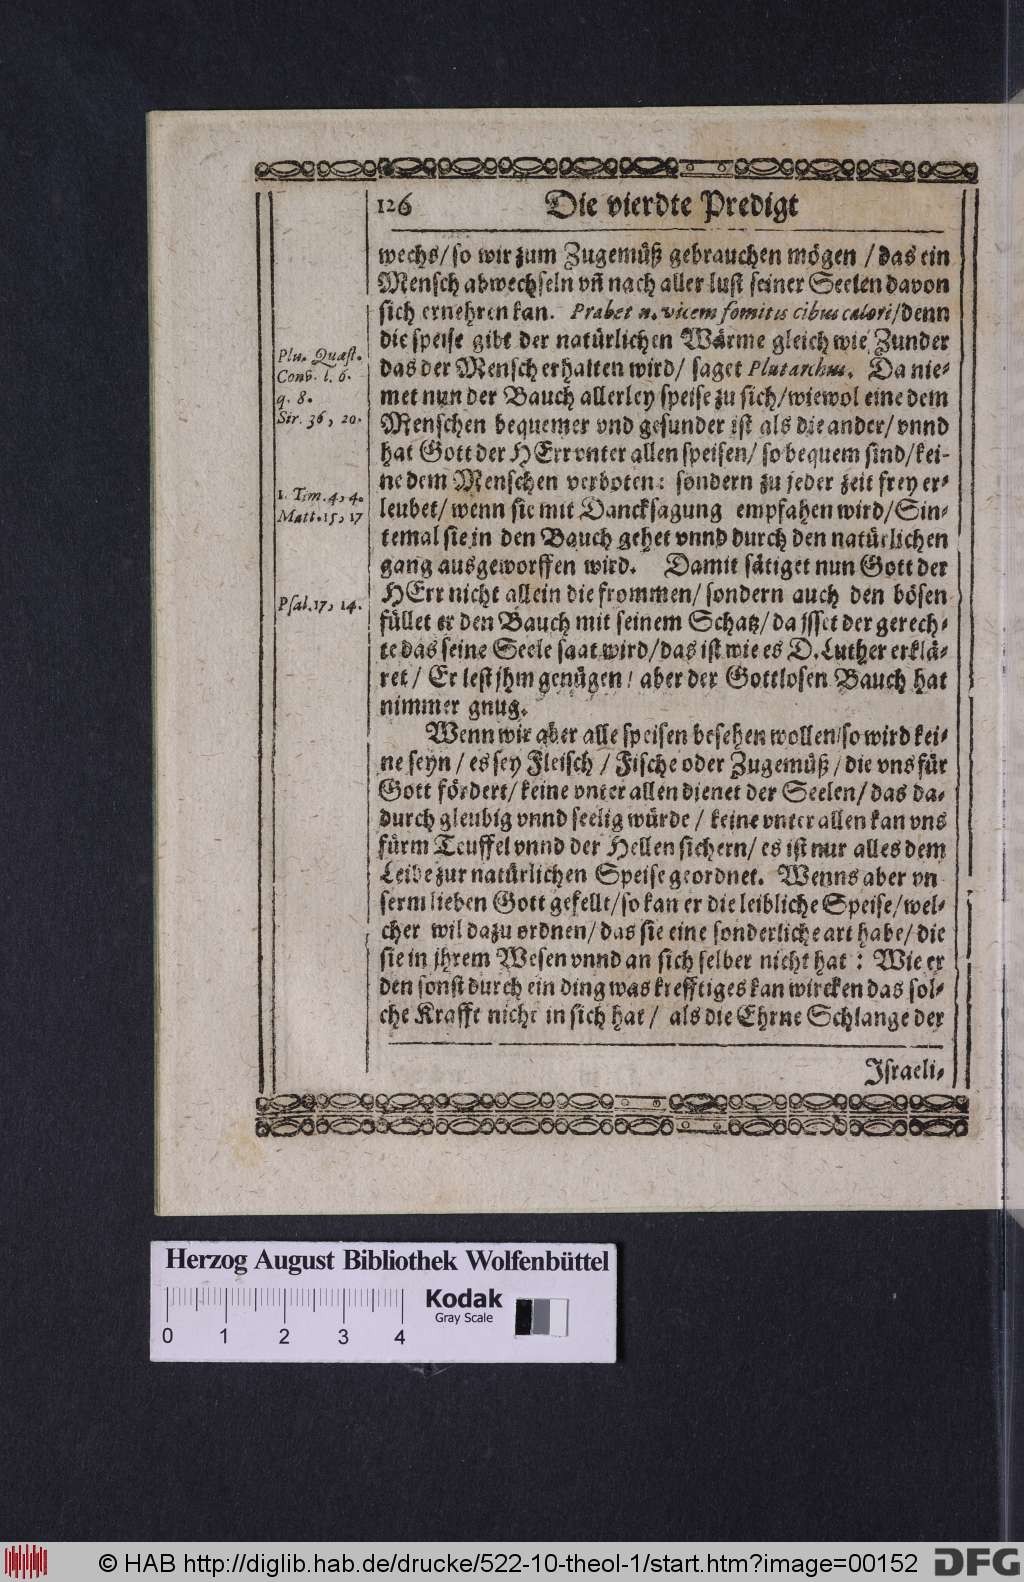 126 Die vierdte Predigt
wechs/ so wir zum Zugemüß gebrauchen mögen / das ein
Mensch abwechseln vñ nach aller lust seiner Seelen davon
sich ernehren kan. Præbet n. vicem fomitis cibus calori/ denn
die speise gibt der natürlichen Wärme gleich wie Zunder
das der Mensch erhalten wird/ saget Plutarchus. Da nie-
met nun der Bauch allerley speise zu sich/ wiewol eine dem
Menschen bequemer vnd gesunder ist als die ander/ vnnd
hat Gott der HErr vnter allen speisen/ so bequem sind/ kei-
ne dem Menschen verboten: sondern zu jeder zeit frey er-
leubet/ wenn sie mit Dancksagung empfahen wird/ Sin-
temal sie in den Bauch gehet vnnd durch den natürlichen
gang ausgeworffen wird. Damit sätiget nun Gott der
HErr nicht allein die frommen/ sondern auch den bösen
füllet er den Bauch mit seinem Schatz/ da jsset der gerech-
te das seine Seele saat wird/ das ist wie es D. Luther erklä-
ret / Er lest jhm genügen/ aber der Gottlosen Bauch hat
nimmer gnug.
Wenn wir aber alle speisen besehen wollen/ so wird kei-
ne seyn / es sey Fleisch / Fische oder Zugemüß / die vns für
Gott fördert/ keine vnter allen dienet der Seelen/ das da-
durch gleubig vnnd seelig würde / keine vnter allen kan vns
fürm Teuffel vnnd der Hellen sichern/ es ist nur alles dem
Leibe zur natürlichen Speise geordnet. Wenns aber vn
serm lieben Gott gefellt/ so kan er die leibliche Speise/ wel-
cher wil dazu ordnen/ das sie eine sonderliche art habe/ die
sie in jhrem Wesen vnnd an sich selber nicht hat : Wie er
den sonst durch ein ding was krefftiges kan wircken das sol-
che Krafft nicht in sich hat / als die Ehrne Schlange der
Israeli-
Plu. Quæst.
Conv. l. 6.
q. 8.
Sir. 36, 20.
1. Tim. 4, 4.
Matt. 15, 17
Psal. 17, 14.
Herzog August Bibliothek Wolfenbüttel
Kodak
Gray Scale
0 1 2 3 4
© HAB http://diglib.hab.de/drucke/522-10-theol-1/start.htm?image=00152
DFG